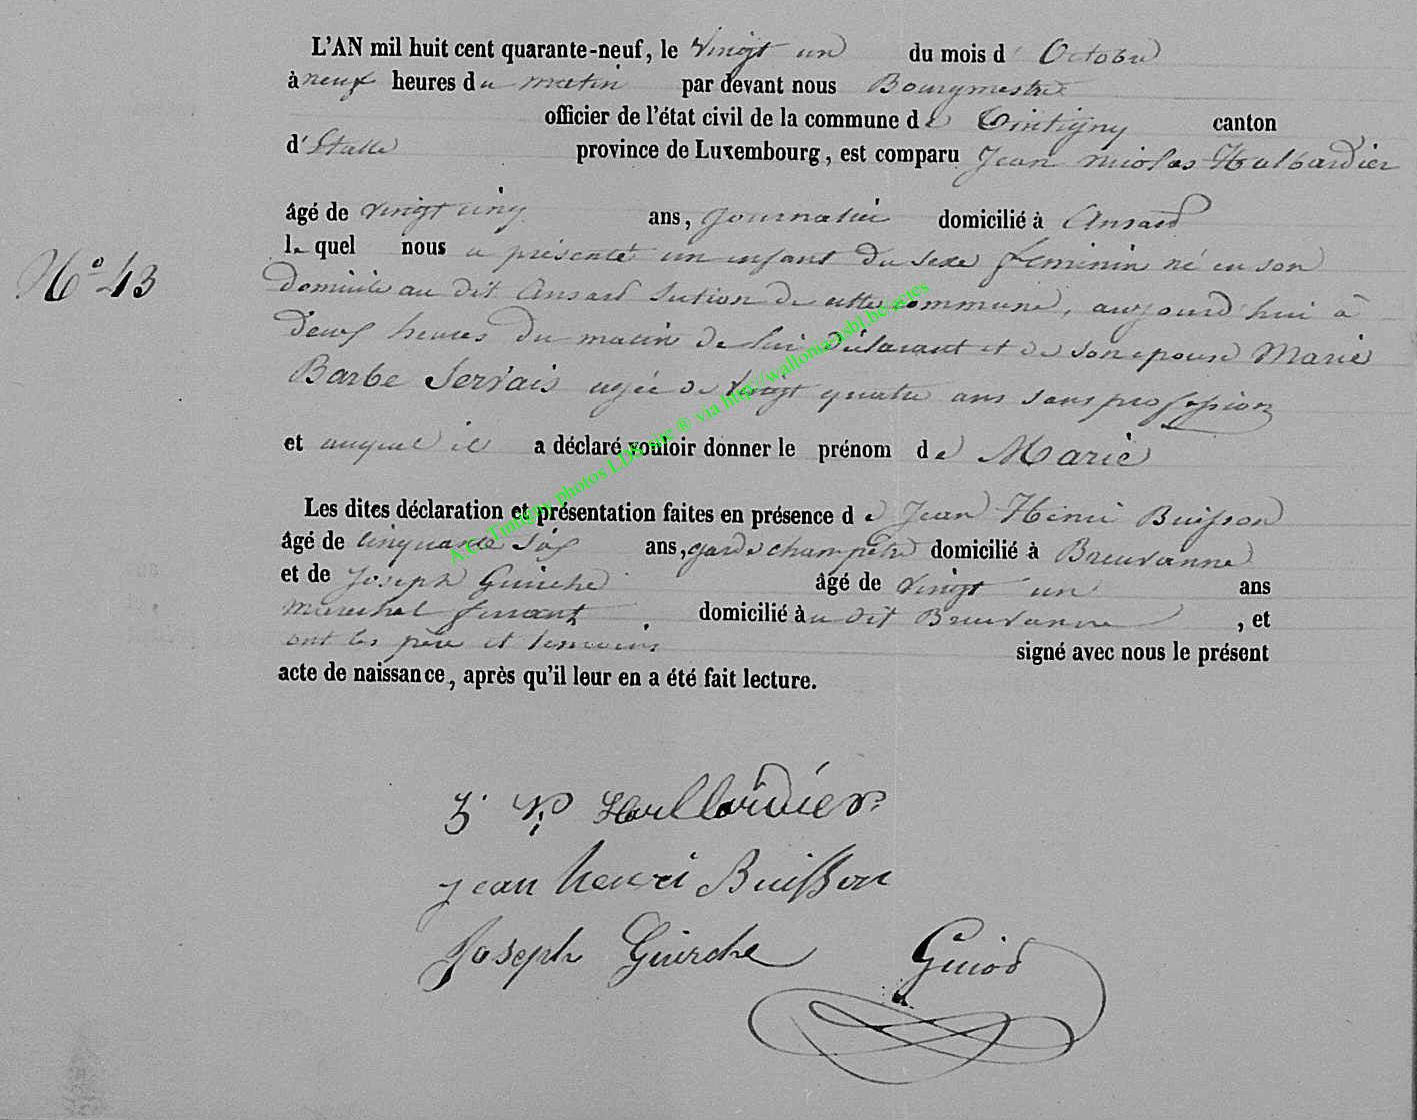 L'AN mil huit cent quarante-neuf, le Vingt un du mois d'Octobre
à neuf heures du matin par devant nous Bourgmestre
officier de l'état civil de la commune de Tintigny canton
d'Etalle province de Luxembourg, est comparu Jean nicolas Halbardier
âgé de vingt cinq ans, journalier domicilié à Ansart
le quel nous a présenté un enfant du sexe féminin né en son
N° 43
domicile au dit Ansart Section de cette commune, aujourd'hui à
deux heures du matin de lui déclarant et de son épouse Marie
Barbe Servais agée de vingt quatre ans sans profession
et auquel il a déclaré vouloir donner le prénom de Marie
Les dites déclaration et présentation faites en présence de Jean Henri Buisson
âgé de cinquante six ans, garde champêtre domicilié à Breuvanne
et de Joseph Guirche âgé de vingt un ans
marechal ferrant domicilié au dit Breuvanne, et
ont les père et temoins signé avec nous le présent
acte de naissance, après qu'il leur en a été fait lecture.
J. N. Hallbardier
jean henri Buisson
Joseph Guirche Guiot
A.C. Tintigny photos LDS site ® via http://wallonia-asbl.be/actes